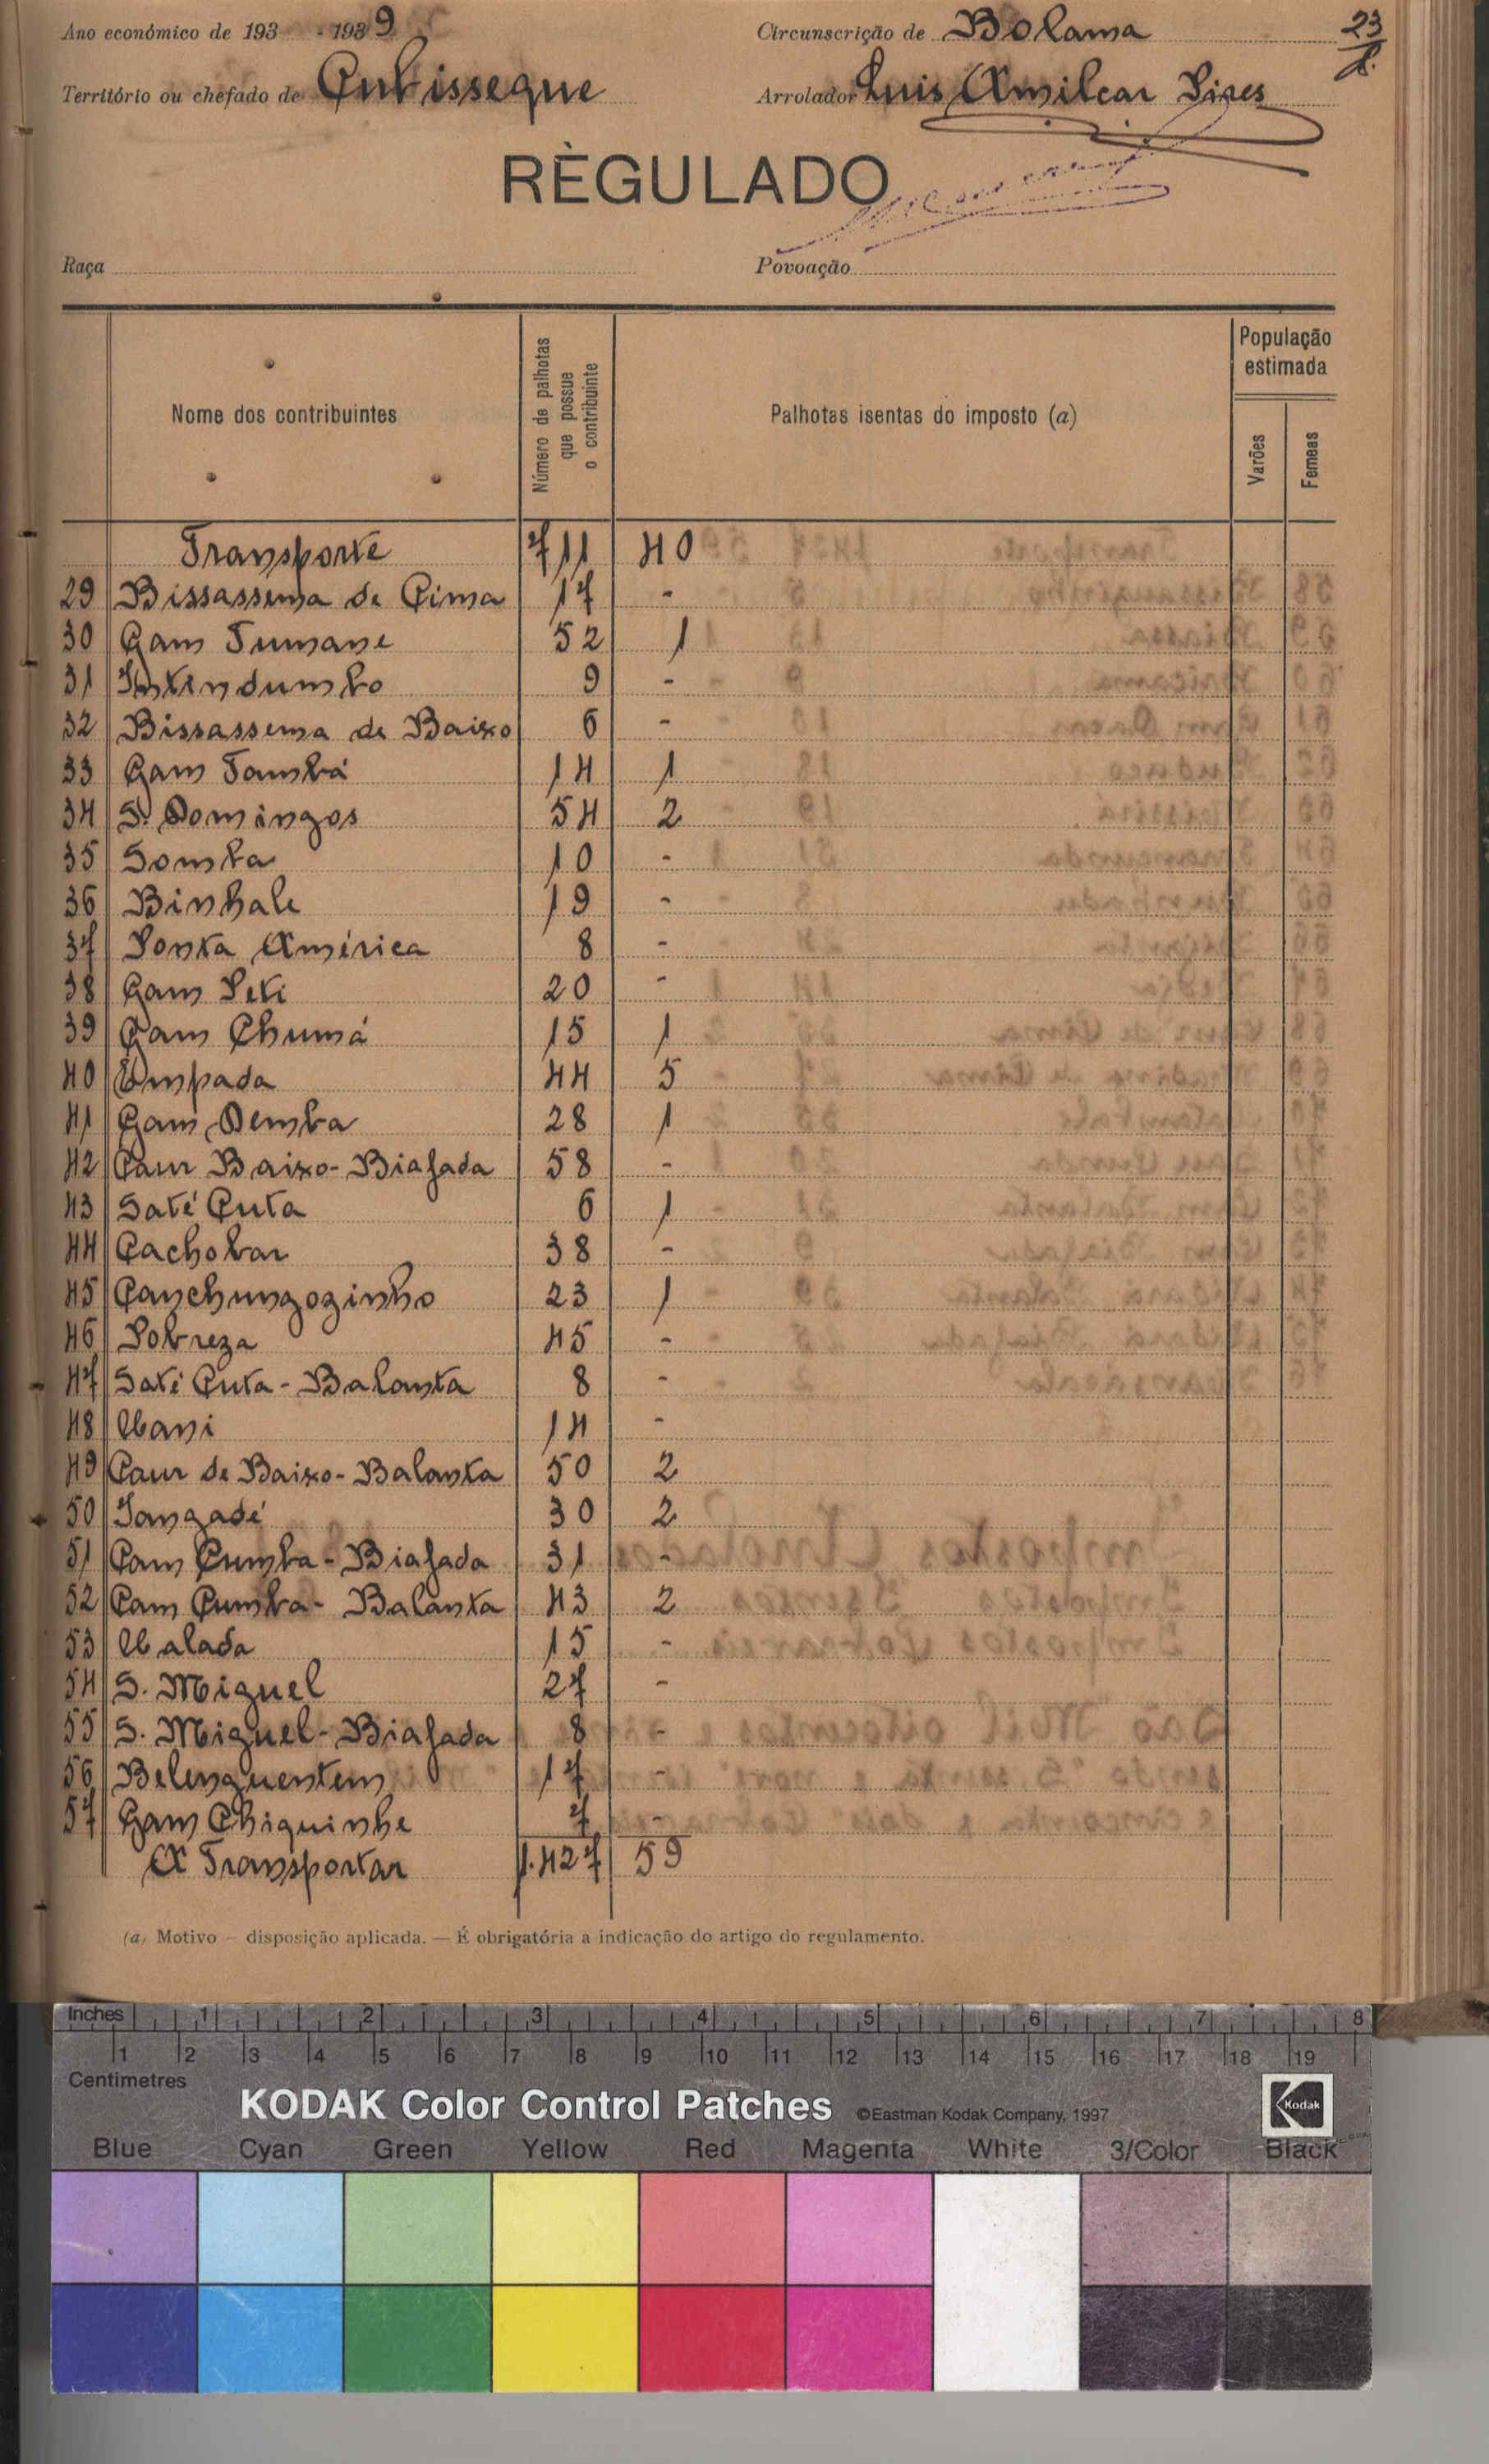 Ano económico de 193 -1939 Circunscrição de Bolama 23
Território ou chefado de Cubisseque Arrolador Luis Amilcar Pires
RÈGULADO
Raça Povoação
Nome dos contribuintes Número de palhotas que possue o contribuinte Palhotas isentas do imposto (a) População estimada Varões Femeas
Transporte 711 40
29 Bissassema de Cima 17 -
30 Gam Tumane 52 1
31 Intindumbo 9 -
32 Bissassema de Baixo 6 -
33 Gam Tambá 14 1
34 S. Domingos 54 2
35 Somba 10 -
36 Binhale 19 -
37 Ponta América 8 -
38 Gam Peti 20 -
39 Gam Chumá 15 1
40 Empada 44 5
41 Gam Demba 28 1
42 Caur Baixo-Biafada 58 -
43 Saté Cuta 6 1
44 Cachobar 38 -
45 Canchungozinho 23 1
46 Pobreza 45 -
47 Saté Cuta - Balanta 8 -
48 Uani 14 -
49 Caur de Baixo-Balanta 50 2
50 Iangadé 30 2
51 Cam Cumba - Biafada 31 -
52 Cam Cumba- Balanta 43 2
53 Ualada 15 -
54 S. Miguel 27 -
55 S. Miguel-Biafada 8 -
56 Belenguentem 17 -
57 Gam Chiquinhe 7 -
A Transportar 1.427 59
(a) Motivo — disposição aplicada. — É obrigatória a indicação do artigo do regulamento.
Inches 1 2 3 4 5 6 7 8
1 2 3 4 5 6 7 8 9 10 11 12 13 14 15 16 17 18 19
Centimetres
KODAK Color Control Patches ©Eastman Kodak Company, 1997 Kodak
Blue Cyan Green Yellow Red Magenta White 3/Color Black